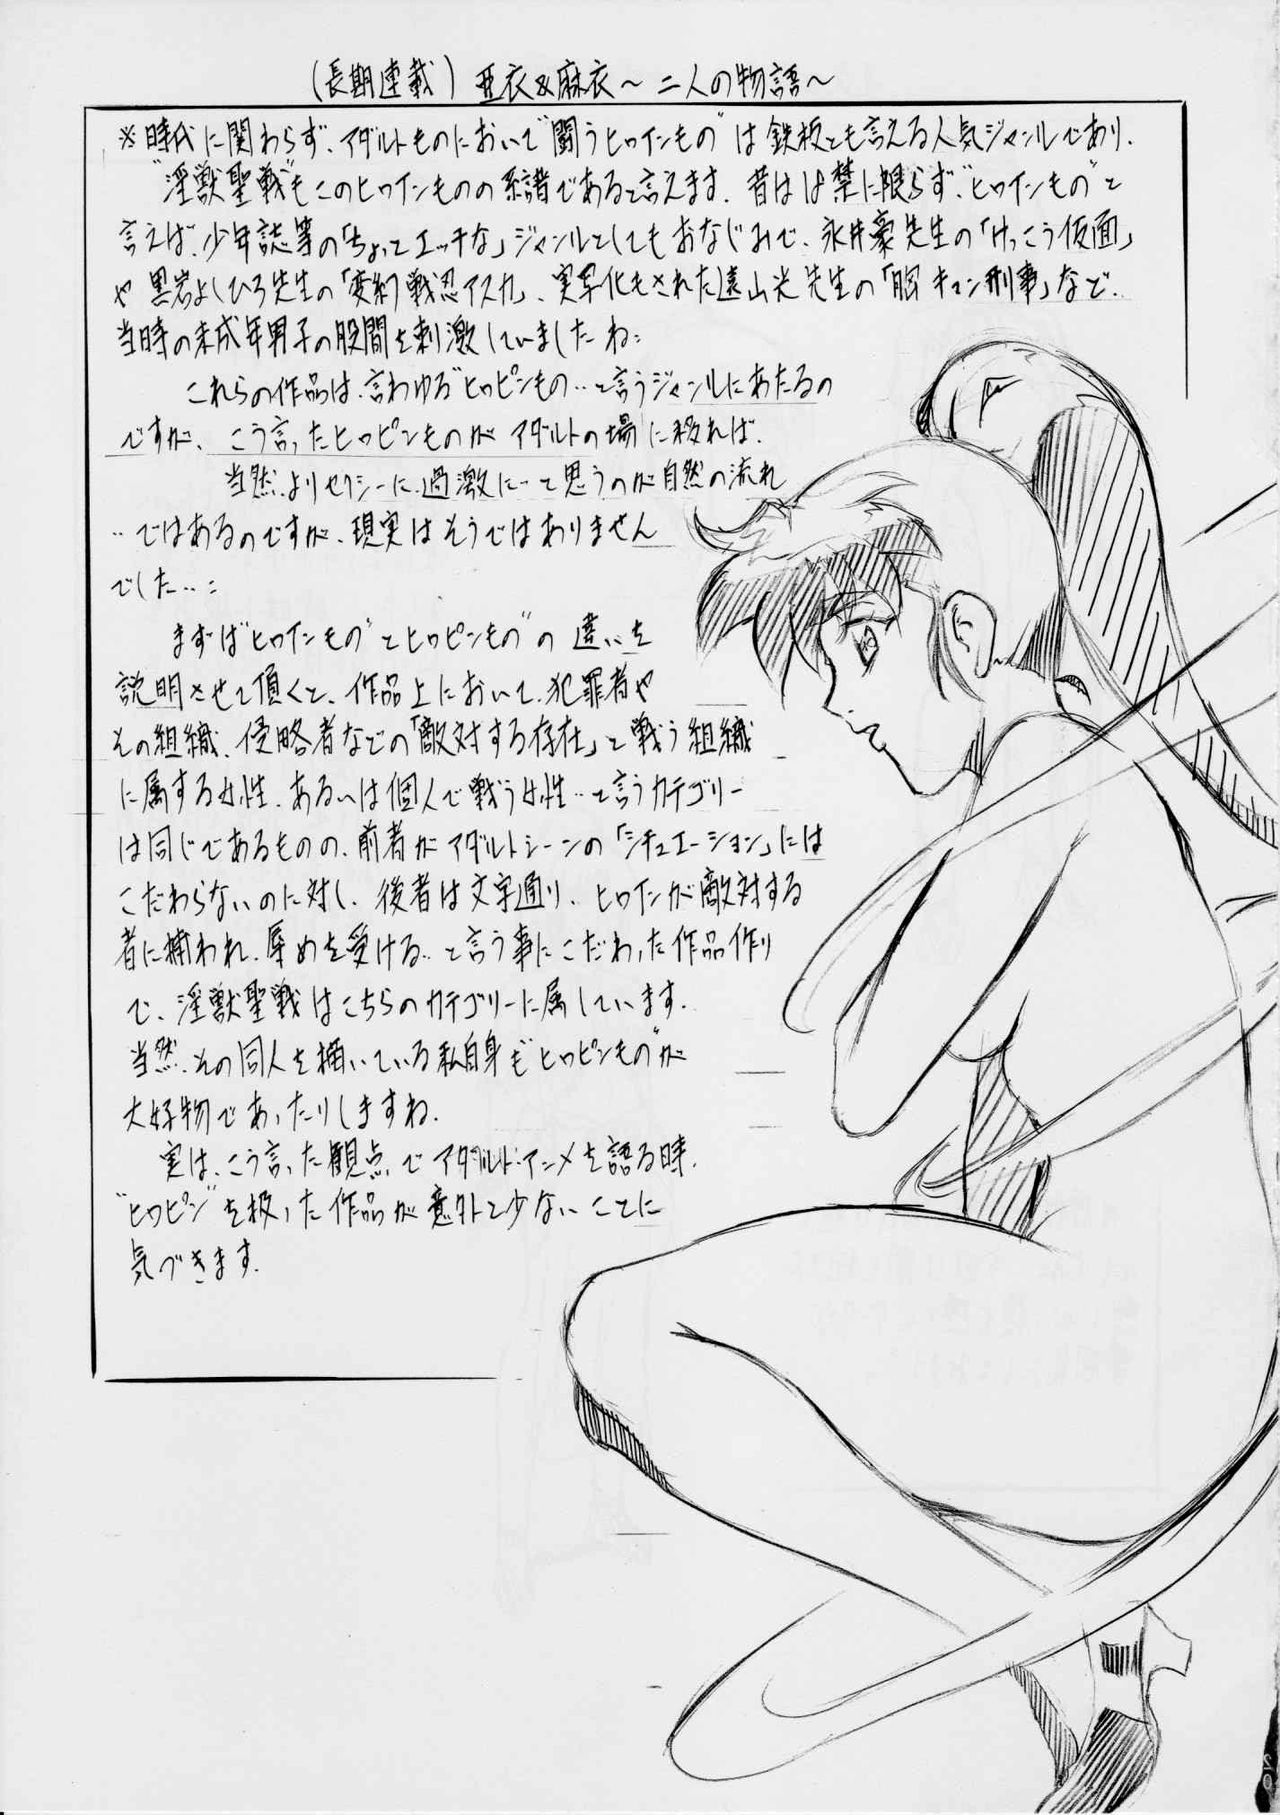 (長期連載) 亜衣&麻衣～二人の物語～
※時代に関わらず、アダルトものにおいて"闘うヒロインもの"は鉄板とも言える人気ジャンルであり、
"淫獣聖戦"もこのヒロインものの系譜であると言えます。昔は18禁に限らず、"ヒロインもの"と
言えば、少年誌等の「ちょっとエッチな」ジャンルとしてもおなじみで、永井豪先生の「けっこう仮面」
や黒岩よしひろ先生の「変幻戦忍アスカ」、実写化もされた遠山光先生の「胸キュン刑事」など‥
当時の未成年男子の股間を刺激していましたね：
これらの作品は、言わゆる"ヒロピンもの‥と言うジャンルにあたるの
ですが、こう言ったヒロピンものがアダルトの場に移れば、
当然、よりセクシーに、過激に‥と思うのが自然の流れ
‥ではあるのですが、現実はそうではありません
でした‥：
まずは"ヒロインもの"とヒロピンもの"の違いを
説明させて頂くと、作品上において、犯罪者や
その組織、侵略者などの「敵対する存在」と戦う組織
に属する女性、あるいは個人で戦う女性‥と言うカテゴリー
は同じであるものの、前者がアダルトシーンの「シチュエーション」には
こだわらないのに対し、後者は文字通り、ヒロインが敵対する
者に捕われ、辱めを受ける‥と言う事にこだわった作品作り
で、淫獣聖戦はこちらのカテゴリーに属しています。
当然、その同人を描いている私自身も"ヒロピンもの"が
大好物であったりしますね。
実は、こう言った観点でアダルト・アニメを語る時、
"ヒロピン"を扱った作品が意外と少ないことに
気づきます。